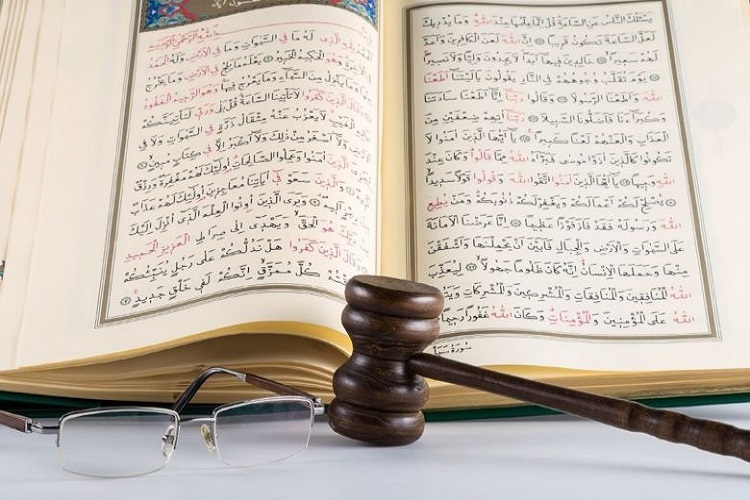 يَسْـَٔلُكَ النَّاسُ عَنِ السَّاعَةِ قُلْ إِنَّمَا عِلْمُهَا عِنْدَ اللهِ وَمَا يُدْرِيكَ
لَعَلَّ السَّاعَةَ تَكُونُ قَرِيبًا ۞ إِنَّ اللهَ لَعَنَ الْكَافِرِينَ وَأَعَدَّ
لَهُمْ سَعِيرًا ۞ خَالِدِينَ فِيهَا أَبَدًا لَا يَجِدُونَ وَلِيًّا وَلَا نَصِيرًا
۞ يَوْمَ تُقَلَّبُ وُجُوهُهُمْ فِي النَّارِ يَقُولُونَ يَا لَيْتَنَا أَطَعْنَا
اللهَ وَأَطَعْنَا الرَّسُولَا ۞ وَقَالُوا رَبَّنَا إِنَّا أَطَعْنَا سَادَتَنَا
وَكُبَرَاءَنَا فَأَضَلُّونَا السَّبِيلَا ۞ رَبَّنَا آتِهِمْ ضِعْفَيْنِ مِنَ
الْعَذَابِ وَالْعَنْهُمْ لَعْنًا كَبِيرًا ۞ يَا أَيُّهَا الَّذِينَ آمَنُوا لَا
تَكُونُوا كَالَّذِينَ آذَوْا مُوسَى فَبَرَّأَهُ اللهُ مِمَّا قَالُوا وَكَانَ عِنْدَ
اللهِ وَجِيهًا ۞ يَا أَيُّهَا الَّذِينَ آمَنُوا اتَّقُوا اللهَ وَقُولُوا قَوْلًا سَدِيدًا
۞ يُصْلِحْ لَكُمْ أَعْمَالَكُمْ وَيَغْفِرْ لَكُمْ ذُنُوبَكُمْ وَمَنْ يُطِعِ
اللهَ وَرَسُولَهُ فَقَدْ فَازَ فَوْزًا عَظِيمًا ۞ إِنَّا عَرَضْنَا الْأَمَانَةَ
عَلَى السَّمٰوَاتِ وَالْأَرْضِ وَالْجِبَالِ فَأَبَيْنَ أَنْ يَحْمِلْنَهَا وَأَشْفَقْنَ
مِنْهَا وَحَمَلَهَا الْإِنْسَانُ إِنَّهُ كَانَ ظَلُومًا جَهُولًا ۞ لِيُعَذِّبَ
اللهُ الْمُنَافِقِينَ وَالْمُنَافِقَاتِ وَالْمُشْرِكِينَ وَالْمُشْرِكَاتِ
اللهُ عَلَى الْمُؤْمِنِينَ وَالْمُؤْمِنَاتِ وَكَانَ اللهُ غَفُورًا رَحِيمًا
سورة سبأ
لَهُ مَا فِي السَّمٰوَاتِ وَمَا فِي الْأَرْضِ وَلَهُ الْحَمْدُ
فِي الْآخِرَةِ وَهُوَ الْحَكِيمُ الْخَبِيرُ ۞ يَعْلَمُ مَا يَلِجُ فِي الْأَرْضِ وَمَا يَخْرُجُ
وَمَا يَنْزِلُ مِنَ السَّمَاءِ وَمَا يَعْرُجُ فِيهَا وَهُوَ الرَّحِيمُ الْغَفُورُ
وَقَالَ الَّذِينَ كَفَرُوا لَا تَأْتِينَا السَّاعَةُ قُلْ بَلَى وَرَبِّي لَتَأْتِيَنَّكُمْ
لَا يَعْزُبُ عَنْهُ مِثْقَالُ ذَرَّةٍ فِي السَّمٰوَاتِ وَلَا فِي
الْأَرْضِ وَلَا أَصْغَرُ مِنْ ذٰلِكَ وَلَا أَكْبَرُ إِلَّا فِي كِتَابٍ مُبِينٍ ۞
الَّذِينَ آمَنُوا وَعَمِلُوا الصَّالِحَاتِ أُولٰئِكَ لَهُمْ مَغْفِرَةٌ وَرِزْقٌ
۞ وَالَّذِينَ سَعَوْ فِي آيَاتِنَا مُعَاجِزِينَ أُولٰئِكَ لَهُمْ عَذَابٌ
مِنْ رِجْزٍ أَلِيمٌ ۞ وَيَرَى الَّذِينَ أُوتُوا الْعِلْمَ الَّذِي أُنْزِلَ إِلَيْكَ
مِنْ رَبِّكَ هُوَ الْحَقَّ وَيَهْدِي إِلَى صِرَاطِ الْعَزِيزِ الْحَمِيدِ
وَقَالَ الَّذِينَ كَفَرُوا هَلْ نَدُلُّكُمْ عَلَى رَجُلٍ يُنَبِّئُكُمْ
كُلَّ مُمَزَّقٍ إِنَّكُمْ لَفِي خَلْقٍ جَدِيدٍ ۞